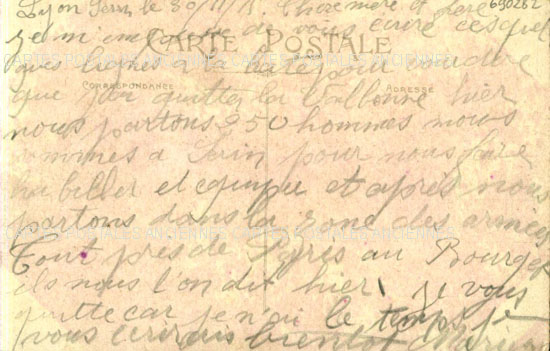 Lyon Serin le 30/11/ Chère mère et père
690282
je m'empresse de vous écrire ces quel
CARTE POSTALE
ques lignes à la hate pour vous dire
CORRESPONDANCE
ADRESSE
que j'ai quitter la Valbonne hier
nous partons 250 hommes nous
sommes a Serin pour nous faire
habiller et équipe et après nous
partons dans la zone des armées
CARTES POSTALES ANCIENNES
Tout près de Paris au Bourget
ils nous l'on dit hier. je vous
quitte car je n'ai le temps je
vous écrirais bientot